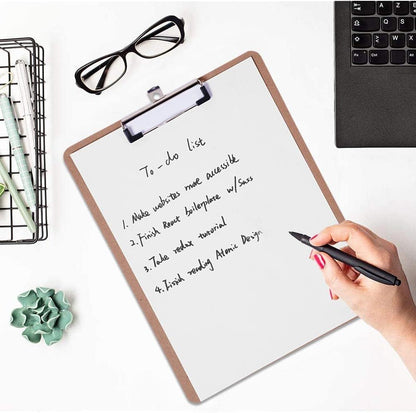 To-do List
1. Make websites more accessible
2. Finish React boilerplate w/Sass
3. Take redux tutorial
4. Finish reading Atomic Design